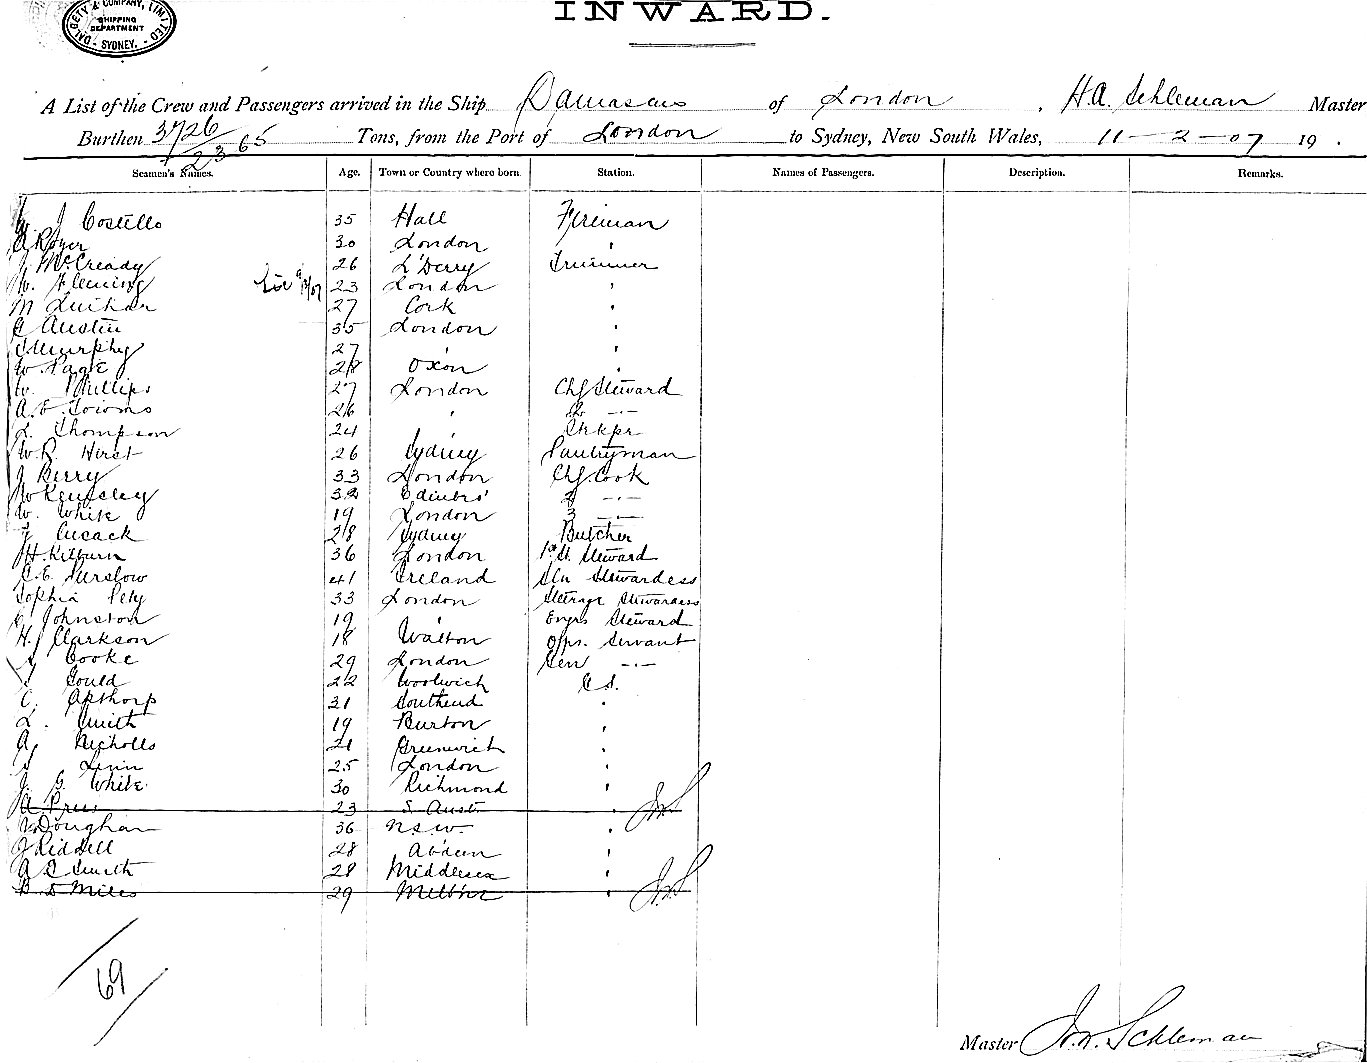 DALGETY & COMPANY, LIMITED
SHIPPING
DEPARTMENT
SYDNEY.
INWARD.
A List of the Crew and Passengers arrived in the Ship Damascus of London, H.A. Schleman Master
Burthen 3726/2365 Tons, from the Port of London to Sydney, New South Wales, 11-2-07 19 .
Seamen's Names. Age. Town or Country where born Station. Names of Passengers. Description. Remarks.
J Costello 35 Hull Fireman
A Royer 30 London "
J McCready 26 L'Derry Trimmer
W. Fleming 23 London "
M 27 Cork "
G Austin 35 London "
J Murphy 27 " "
W. Page 28 Oxon "
W. Phillips 27 London Chf Steward
A. E. 26 " 2 -"-
L. Thompson 24 " Strkpr
W R. Hirst 26 Sydney Pantryman
J Berry 33 London Chf Cook
W Kensley 32 Edinbro' 2 -"-
W. White 19 London 3 -"-
J Cusack 28 Sydney Butcher
H. Kilburn 36 London 1st St. Steward
C. E. Purslow 41 Ireland Sln Stewardess
Sophia Pety 33 London Steerage Stewardess
C Johnston 19 " Engrs Steward
H. J Clarkson 18 Walton Offrs. Servant
Cooke 29 London Gen -"-
Gould 22 Woolwich G S.
C. Apthorp 31 Southend "
L. Smith 19 Burton "
A. Nicholls 21 Greenwich "
Linn 25 London "
J. G. White 30 Richmond "
A 23 S. Aust. "
36 N.S.W. "
J Riddell 28 Ab'deen "
A E Smith 28 Middlesex "
B D Miles 29 Melb'ne "
69
Master Schleman